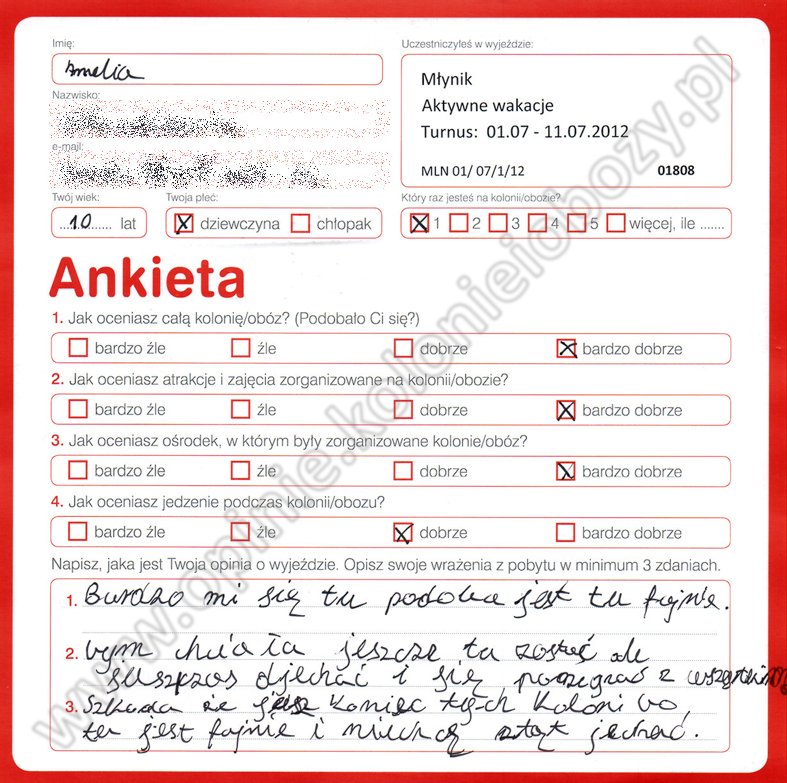 Imię:
Amelia
Uczestniczyłeś w wyjeździe:
Młynik
Aktywne wakacje
Turnus: 01.07 - 11.07.2012
MLN 01/ 07/1/12 01808
Nazwisko:
e-mail:
Twój wiek:
...10...... lat
Twoja płeć:
dziewczyna chłopak
Który raz jesteś na kolonii/obozie?
1 2 3 4 5 więcej, ile .......
Ankieta
1. Jak oceniasz całą kolonię/obóz? (Podobało Ci się?)
bardzo źle źle dobrze bardzo dobrze
2. Jak oceniasz atrakcje i zajęcia zorganizowane na kolonii/obozie?
bardzo źle źle dobrze bardzo dobrze
3. Jak oceniasz ośrodek, w którym były zorganizowane kolonie/obóz?
bardzo źle źle dobrze bardzo dobrze
4. Jak oceniasz jedzenie podczas kolonii/obozu?
bardzo źle źle dobrze bardzo dobrze
Napisz, jaka jest Twoja opinia o wyjeździe. Opisz swoje wrażenia z pobytu w minimum 3 zdaniach.
1. Bardzo mi się tu podoba jest tu fajnie.
2. bym chciała jeszcze tu zostać ale
już czas djechać i się porzegnać z wszystkim
3. Szkoda że jusz koniec tych koloni bo,
tu jest fajnie i niechcę stąt jechać.
www.opinie.kolonieiobozy.pl